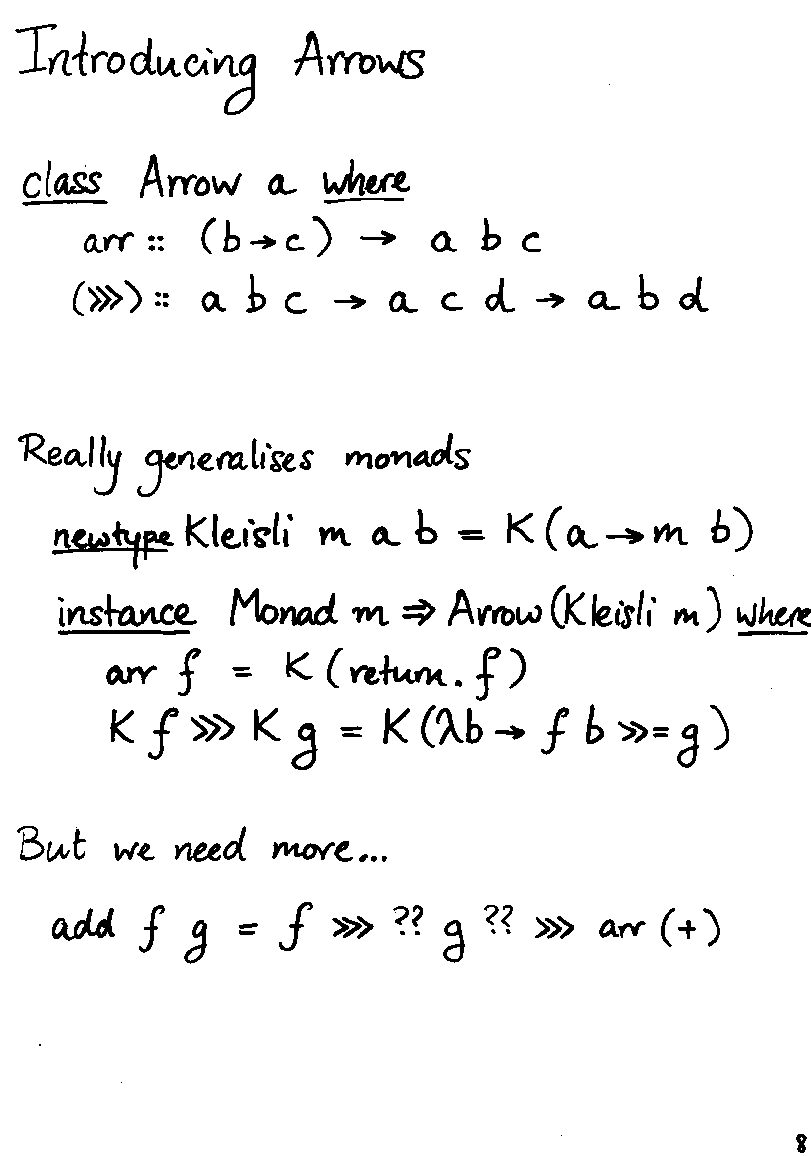 Introducing Arrows
class Arrow a where
arr :: (b → c) → a b c
(⋙) :: a b c → a c d → a b d
Really generalises monads
newtype Kleisli m a b = K (a → m b)
instance Monad m ⇒ Arrow (Kleisli m) where
arr f = K (return . f)
K f ⋙ K g = K (λb → f b ≫= g)
But we need more...
add f g = f ⋙ ?? g ?? ⋙ arr (+)
8